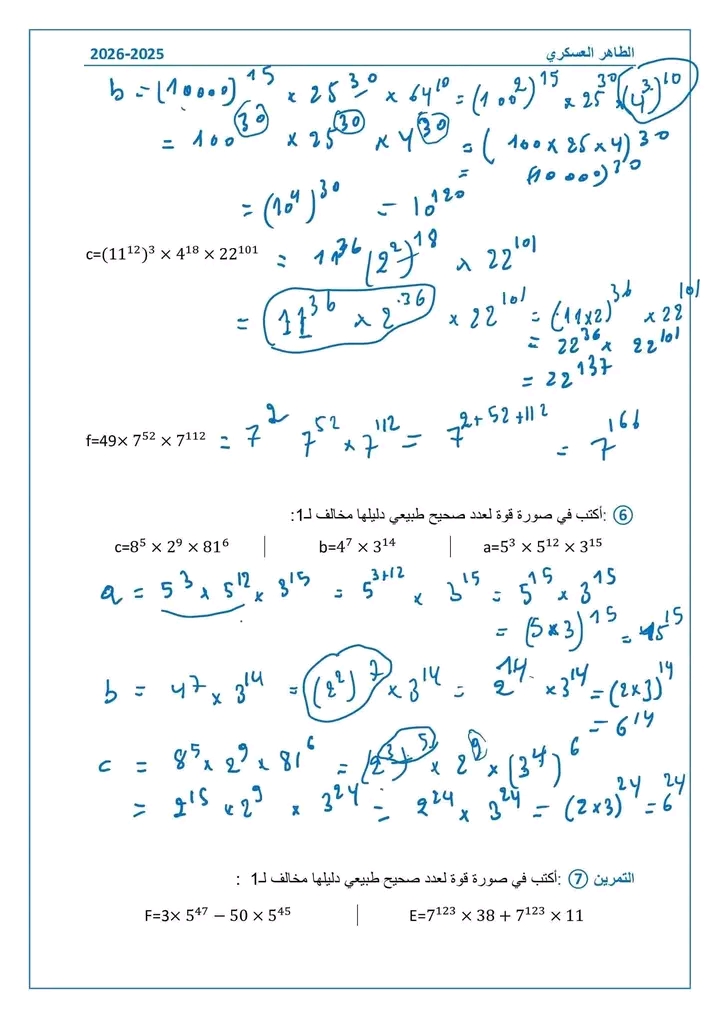 2026-2025 الطاهر العسكري
b = (10000)¹⁵ × 25³⁰ × 64¹⁰ = (100²)¹⁵ × 25³⁰ × (4³)¹⁰
= 100³⁰ × 25³⁰ × 4³⁰ = (100 × 25 × 4)³⁰
= (10000)³⁰
= (10⁴)³⁰ = 10¹²⁰
c=(11¹²)³ × 4¹⁸ × 22¹⁰¹ = 11³⁶ (2²)¹⁸ × 22¹⁰¹
= 11³⁶ × 2³⁶ × 22¹⁰¹ = (11×2)³⁶ × 22¹⁰¹
= 22³⁶ × 22¹⁰¹
= 22¹³⁷
f=49× 7⁵² × 7¹¹² = 7² 7⁵² × 7¹¹² = 7²⁺⁵²⁺¹¹² = 7¹⁶⁶
⑥ :أكتب في صورة قوة لعدد صحيح طبيعي دليلها مخالف لـ1:
c=8⁵ × 2⁹ × 81⁶ | b=4⁷ × 3¹⁴ | a=5³ × 5¹² × 3¹⁵
a = 5³ × 5¹² × 3¹⁵ = 5³⁺¹² × 3¹⁵ = 5¹⁵ × 3¹⁵
= (5×3)¹⁵ = 15¹⁵
b = 4⁷ × 3¹⁴ = (2²)⁷ × 3¹⁴ = 2¹⁴ × 3¹⁴ = (2×3)¹⁴
= 6¹⁴
c = 8⁵ × 2⁹ × 81⁶ = (2³)⁵ × 2⁹ × (3⁴)⁶
= 2¹⁵ × 2⁹ × 3²⁴ = 2²⁴ × 3²⁴ = (2×3)²⁴ = 6²⁴
التمرين ⑦ :أكتب في صورة قوة لعدد صحيح طبيعي دليلها مخالف لـ1 :
F=3× 5⁴⁷ − 50 × 5⁴⁵ | E=7¹²³ × 38 + 7¹²³ × 11